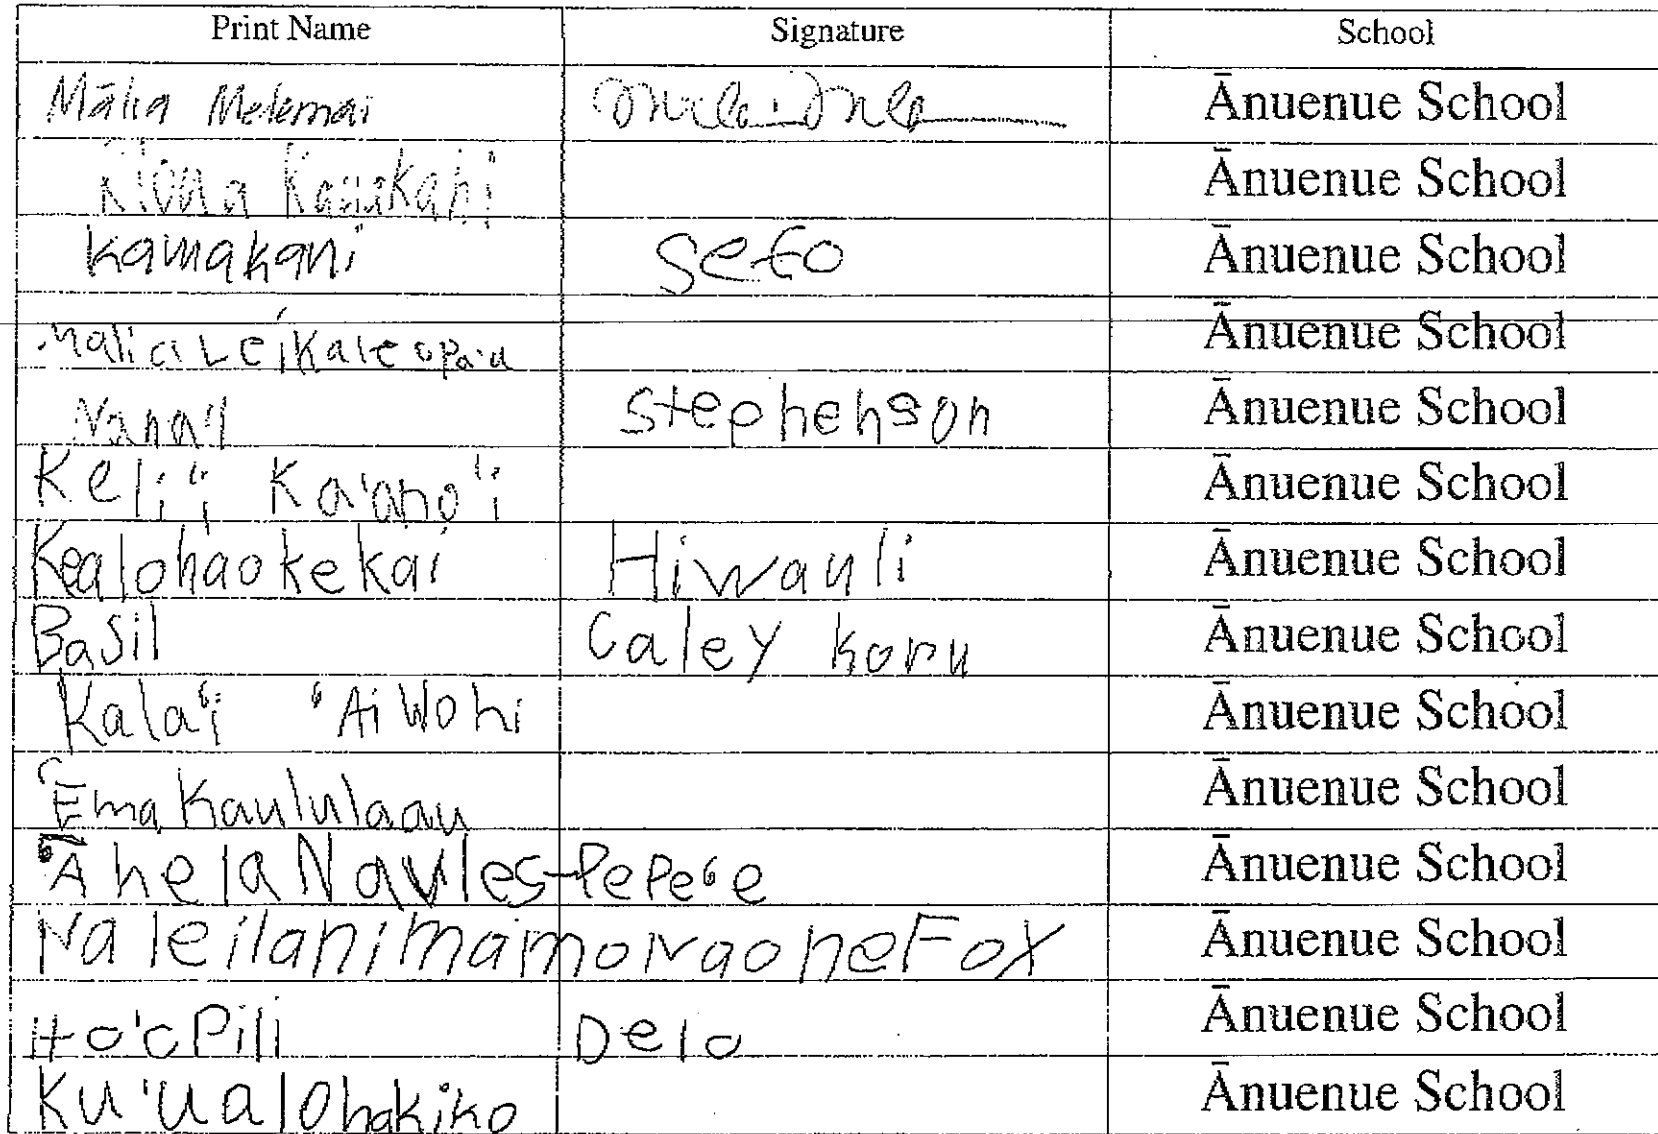 Print Name Signature School
Mālia Melemai Ānuenue School
Ānuenue School
Kamakani Sefo Ānuenue School
Malia Leikaleopa'a Ānuenue School
Stephenson Ānuenue School
Keliʻi Kaʻanoʻi Ānuenue School
Kealohaokekai Hiwauli Ānuenue School
Basil Caley Koru Ānuenue School
Kalaʻi ʻAiWohi Ānuenue School
ʻEma Kaululaau Ānuenue School
ʻĀnela Navles-PePeʻe Ānuenue School
Fox Ānuenue School
Ho'oPili Delo Ānuenue School
Ku'ualohakiko Ānuenue School